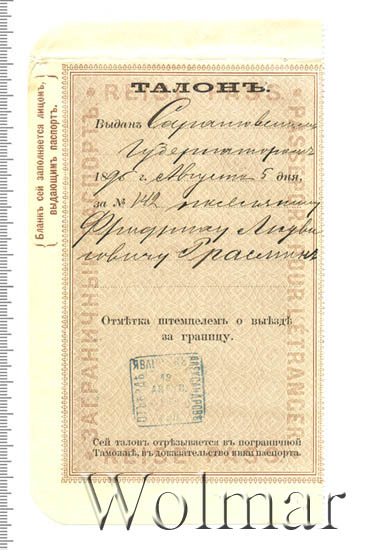 ТАЛОНЪ.
Выданъ Саратовскимъ
Губернаторомъ
1896 г. Августа 5 дня,
за № 142
Фридриху Людви
говичу
Отмѣтка штемпелемъ о выѣздѣ
за границу.
Сей талонъ отрѣзывается въ пограничной
Таможнѣ, въ доказательство явки паспорта.
Бланкъ сей заполняется лицомъ,
выдающимъ паспортъ.
REISE-PASS
ЗАГРАНИЧНЫЙ ПАСПОРТЪ
PASSEPORT POUR L'ETRANGER
REISE-PASS
Wolmar